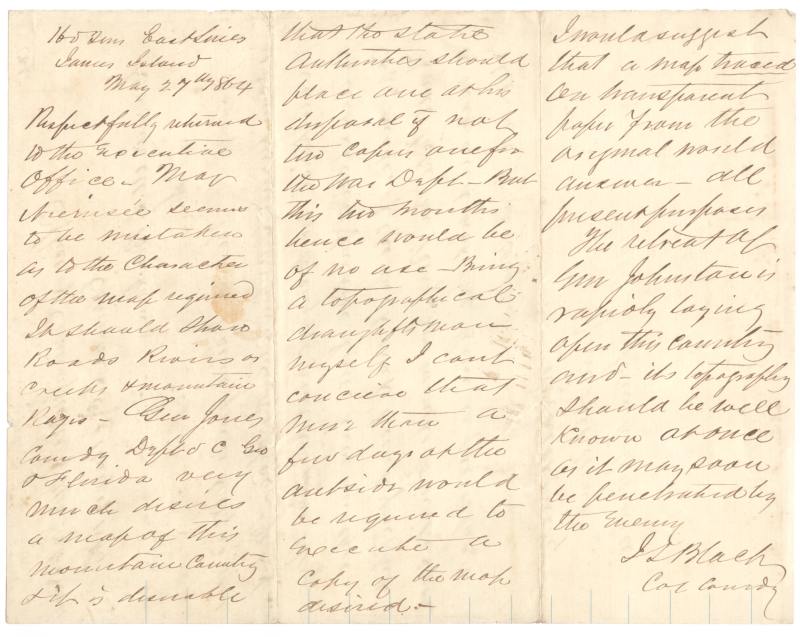 Hd Qrs East Lines
James Island
May 27th 1864
Respectfully returned
to the Executive
Office. Maj
Niernsée seems
to be mistaken
as to the Character
of the map required
It should show
Roads Rivers or
creeks & mountain
Ranges - Gen Jones
Comdg Dept S C Geo
& Florida very
much desires
a map of this
mountain Country
& it is desirable
that the State
Authorities should
place one at his
disposal if not
two copies one for
the War Dept - But
this two months
hence would be
of no use - Being
a topographical
draughtsman
myself I cant
conceive that
more than a
few days at the
outside would
be required to
execute a
copy of the map
desired. -
I would suggest
that a map traced
on transparent
paper from the
original would
answer - all
present purposes
The retreat of
Gen Johnston is
rapidly laying
open this country
and - its topography
should be well
known at once
as it may soon
be penetrated by
the Enemy
J L Black
Col Comdg